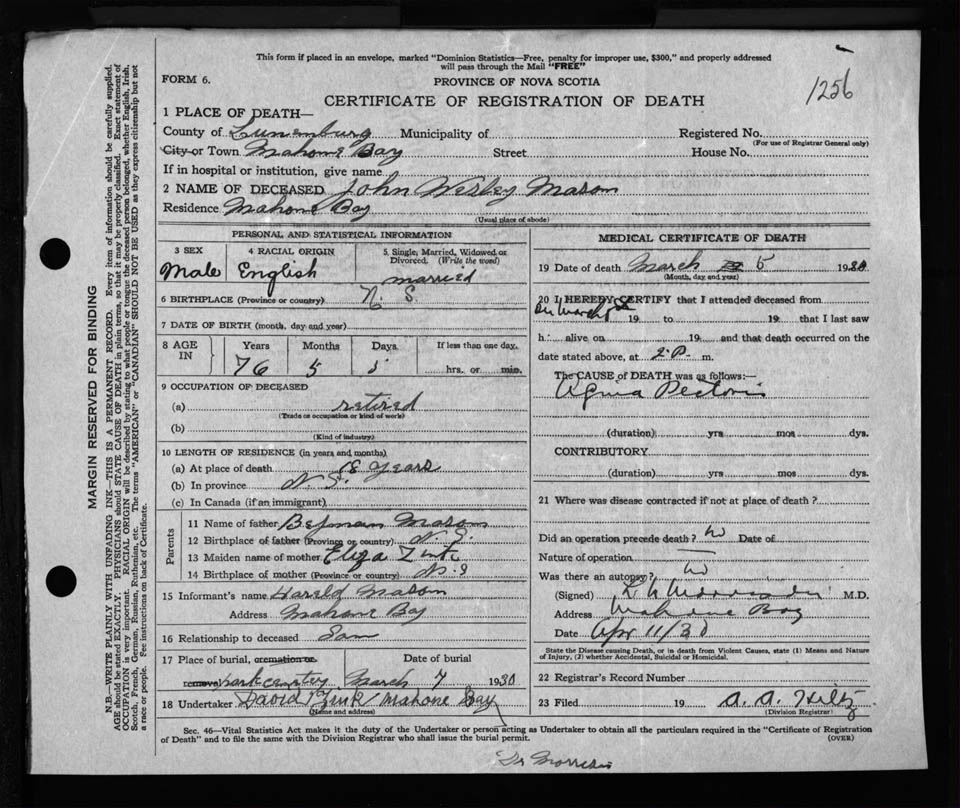 This form if placed in an envelope, marked "Dominion Statistics—Free, penalty for improper use, $300," and properly addressed
will pass through the Mail "FREE"
FORM 6.
PROVINCE OF NOVA SCOTIA
1256
CERTIFICATE OF REGISTRATION OF DEATH
1 PLACE OF DEATH—
County of Lunenburg Municipality of Registered No.
(For use of Registrar General only)
City or Town Mahone Bay Street House No.
If in hospital or institution, give name
2 NAME OF DECEASED John Wesley Mason
Residence Mahone Bay
(Usual place of abode)
PERSONAL AND STATISTICAL INFORMATION
3 SEX 4 RACIAL ORIGIN 5 Single, Married, Widowed or
Divorced. (Write the word)
Male English married
6 BIRTHPLACE (Province or country) N. S.
7 DATE OF BIRTH (month, day and year)
8 AGE IN Years Months Days If less than one day.
76 5 hrs. or min.
9 OCCUPATION OF DECEASED
(a) retired
(Trade or occupation or kind of work)
(b)
(Kind of industry)
10 LENGTH OF RESIDENCE (in years and months)
(a) At place of death 18 years
(b) In province N. S.
(c) In Canada (if an immigrant)
Parents
11 Name of father Mason
12 Birthplace of father (Province or country) N. S.
13 Maiden name of mother Eliza
14 Birthplace of mother (Province or country) N. S
15 Informant's name Harold Mason
Address Mahone Bay
16 Relationship to deceased Son
17 Place of burial, cremation or Date of burial
removal March 7 1930
18 Undertaker David Zink Mahone Bay
(Name and address)
MEDICAL CERTIFICATE OF DEATH
19 Date of death March 5 1930
(Month, day and year)
20 I HEREBY CERTIFY that I attended deceased from
on March 5th 19 to 19 that I last saw
h alive on 19 and that death occurred on the
date stated above, at 2 P. m.
The CAUSE of DEATH was as follows:—
Agina Pectoris
(duration) yrs mos dys.
CONTRIBUTORY
(duration) yrs mos dys.
21 Where was disease contracted if not at place of death?
Did an operation precede death? no Date of
Nature of operation
Was there an autopsy? no
(Signed) M.D.
Address Mahone Bay
Date Apr 11/30
State the Disease causing Death, or in death from Violent Causes, state (1) Means and Nature
of Injury, (2) whether Accidental, Suicidal or Homicidal.
22 Registrar's Record Number
23 Filed 19 A. A. Hiltz
(Division Registrar)
Sec. 46—Vital Statistics Act makes it the duty of the Undertaker or person acting as Undertaker to obtain all the particulars required in the "Certificate of Registration
of Death" and to file the same with the Division Registrar who shall issue the burial permit.
(OVER)
MARGIN RESERVED FOR BINDING
N.B.—WRITE PLAINLY WITH UNFADING INK—THIS IS A PERMANENT RECORD. Every item of information should be carefully supplied.
AGE should be stated EXACTLY. PHYSICIANS should STATE CAUSE OF DEATH in plain terms, so that it may be properly classified. Exact statement of
OCCUPATION is very important. RACIAL ORIGIN will be described by stating to what people or tongue the deceased person belonged, whether English, Irish,
Scotch, French, German, Russian, Ruthenian, etc. The terms "AMERICAN" or "CANADIAN" SHOULD NOT BE USED as they express citizenship but not
a race or people. Fee instructions on back of Certificate.